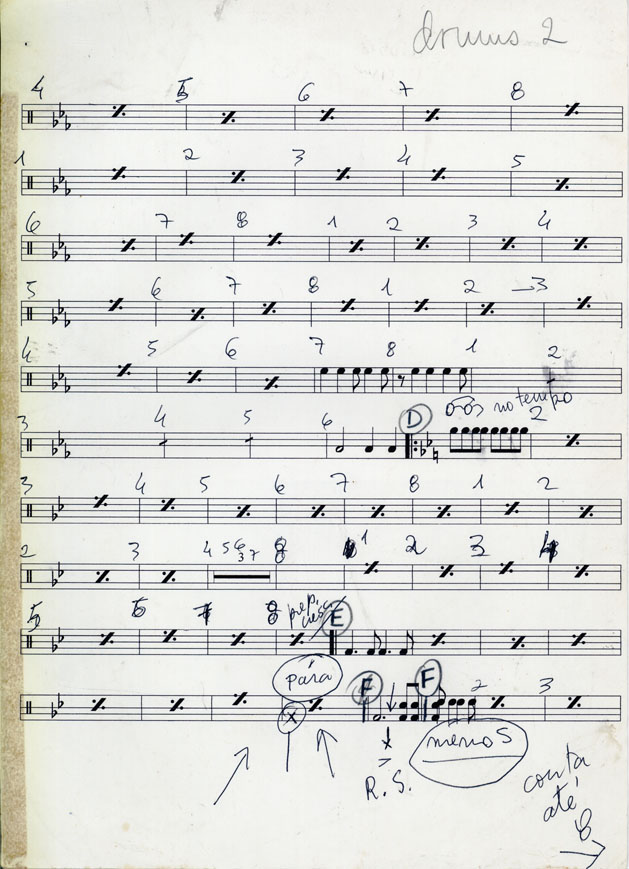 drums 2
4 5 6 7 8
1 2 3 4 5
6 7 8 1 2 3 4
5 6 7 8 1 2 3
4 5 6 7 8 1 2
no tempo
3 4 5 6 D 2
3 4 5 6 7 8 1 2
2 3 4 5 6 7 8 1 2 3 4
5 6 7 8 E
pára F F 2 3
X menos
R.S.
conta
até
8